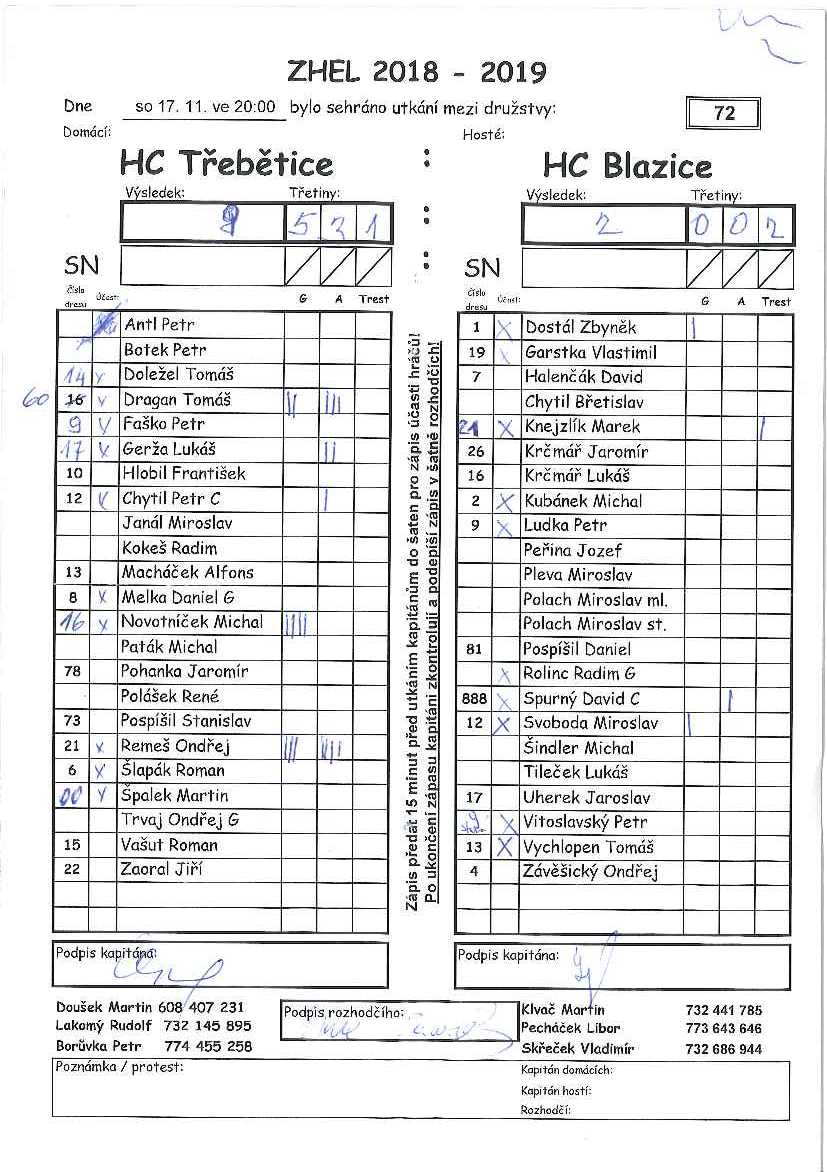 ZHEL 2018 - 2019
Dne so 17. 11. ve 20:00 bylo sehráno utkání mezi družstvy: 72
Domácí: Hosté:
HC Třebětice : HC Blazice
Výsledek: Třetiny: Výsledek: Třetiny:
9 5 3 1 : 2 0 0 2
SN : SN
číslo dresu Účast: G A Trest
Antl Petr
Botek Petr
14 x Doležel Tomáš
60 16 v Dragan Tomáš || |||
9 V Faško Petr
17 x Gerža Lukáš ||
10 Hlobil František
12 V Chytil Petr C |
Janál Miroslav
Kokeš Radim
13 Macháček Alfons
8 x Melka Daniel G
16 x Novotníček Michal ||||
Paták Michal
78 Pohanka Jaromír
Polášek René
73 Pospíšil Stanislav
21 x Remeš Ondřej |||
6 x Šlapák Roman
00 Y Špalek Martin
Trvaj Ondřej G
15 Vašut Roman
22 Zaoral Jiří
Zápis předat 15 minut před utkáním kapitánům do šaten pro zápis účasti hráčů!
Po ukončení zápasu kapitáni zkontrolují a podepíší zápis v šatně rozhodčích!
číslo dresu Účast: G A Trest
1 X Dostál Zbyněk |
19 x Garstka Vlastimil
7 Halenčák David
Chytil Břetislav
21 X Knejzlík Marek |
26 Krčmář Jaromír
16 Krčmář Lukáš
2 X Kubánek Michal
9 X Ludka Petr
Peřina Jozef
Pleva Miroslav
Polach Miroslav ml.
Polach Miroslav st.
81 Pospíšil Daniel
x Rolinc Radim G
888 x Spurný David C |
12 X Svoboda Miroslav |
Šindler Michal
Tileček Lukáš
17 Uherek Jaroslav
X Vitoslavský Petr
13 X Vychlopen Tomáš
4 Závěšický Ondřej
Podpis kapitána: Podpis kapitána:
Doušek Martin 608 407 231 Podpis rozhodčího: Klvač Martin 732 441 785
Lakomý Rudolf 732 145 895 Pecháček Libor 773 643 646
Borůvka Petr 774 455 258 Skřeček Vladimír 732 686 944
Poznámka / protest: Kapitán domácích:
Kapitán hostí:
Rozhodčí: